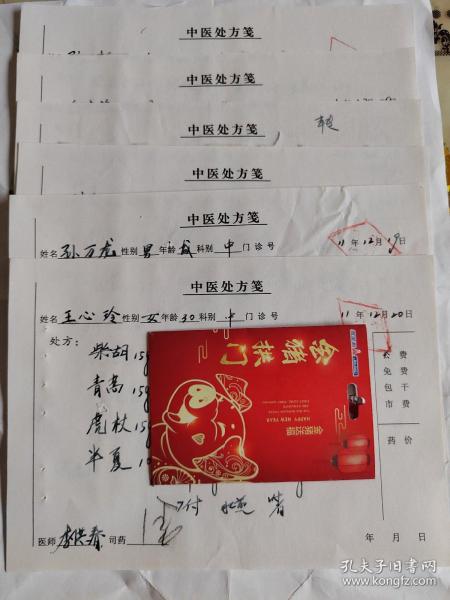 中医处方笺
中医处方笺
中医处方笺
中医处方笺
中医处方笺
姓名 孙万龙 性别 男 年龄 成 科别 中 门诊号 11年12月19日
中医处方笺
姓名 王心玲 性别 女 年龄 30 科别 中 门诊号 11年12月20日
处方:
柴胡 15g
青蒿 15g
虎杖 15g
半夏 10
公费
免费
包干
市费
药价
金猪拱门
HAPPY NEW YEAR
金猪送福
7付 水煎
医师 司药 年 月 日
孔夫子旧书网
www.kongfz.com